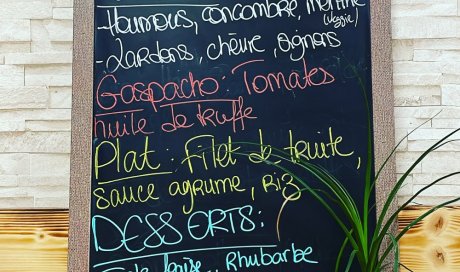 - Houmous, concombre, menthe
(veggie)
- Lardons, chèvre, oignons
Gaspacho : Tomates
huile de truffe
Plat : Filet de truite,
sauce agrume, Riz
DESSERTS :
Rhubarbe